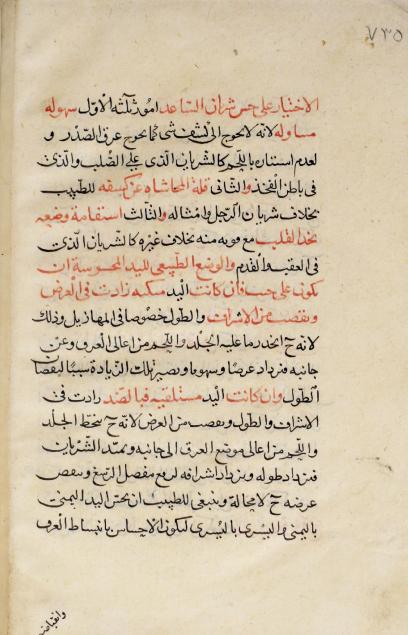 ٧٣٥
الاختيار على جس شريان الساعد امور ثلثة الاول سهولة
مساوله لانه لا يحوج الى كشف شئ كما يحوج عرق الصدر و
لعدم استتاره باللحم كالشريان الذى على الصلب والذى
فى باطن الفخذ والثانى قلة المحاشاة عن كشفه للطبيب
بخلاف شريان الرجل وامثاله والثالث استقامة وضعه
بحذا القلب مع قربه منه بخلاف غيره كالشريان الذى
فى العقب والقدم والوضع الطبيعى لليد المجسوسة ان
تكون على جنب فان كانت اليد منكبة زادت فى العرض
ونقصت من الاشراف والطول خصوصا فى المهازيل وذلك
لانه ح انحدر ما عليه الجلد واللحم من اعالى العرق وعن
جانبه فيزداد عرضا وشهوقا ويصير تلك الزيادة سببا لنقصان
الطول وان كانت اليد مستلقية فبالضد زادت فى
الاشراف والطول ونقصت من العرض لانه ح سخط الجلد
واللحم من اعالى موضع العرق الى جانبه ويمتد الشريان
فيزداد طوله ويزداد اشرافه لرفع مفصل الرسغ وينقص
عرضه ح لا محالة وينبغى للطبيب ان يجس اليد اليمنى
باليمنى واليسرى باليسرى ليكون الاحساس بانبساط العرق
وانقباضه